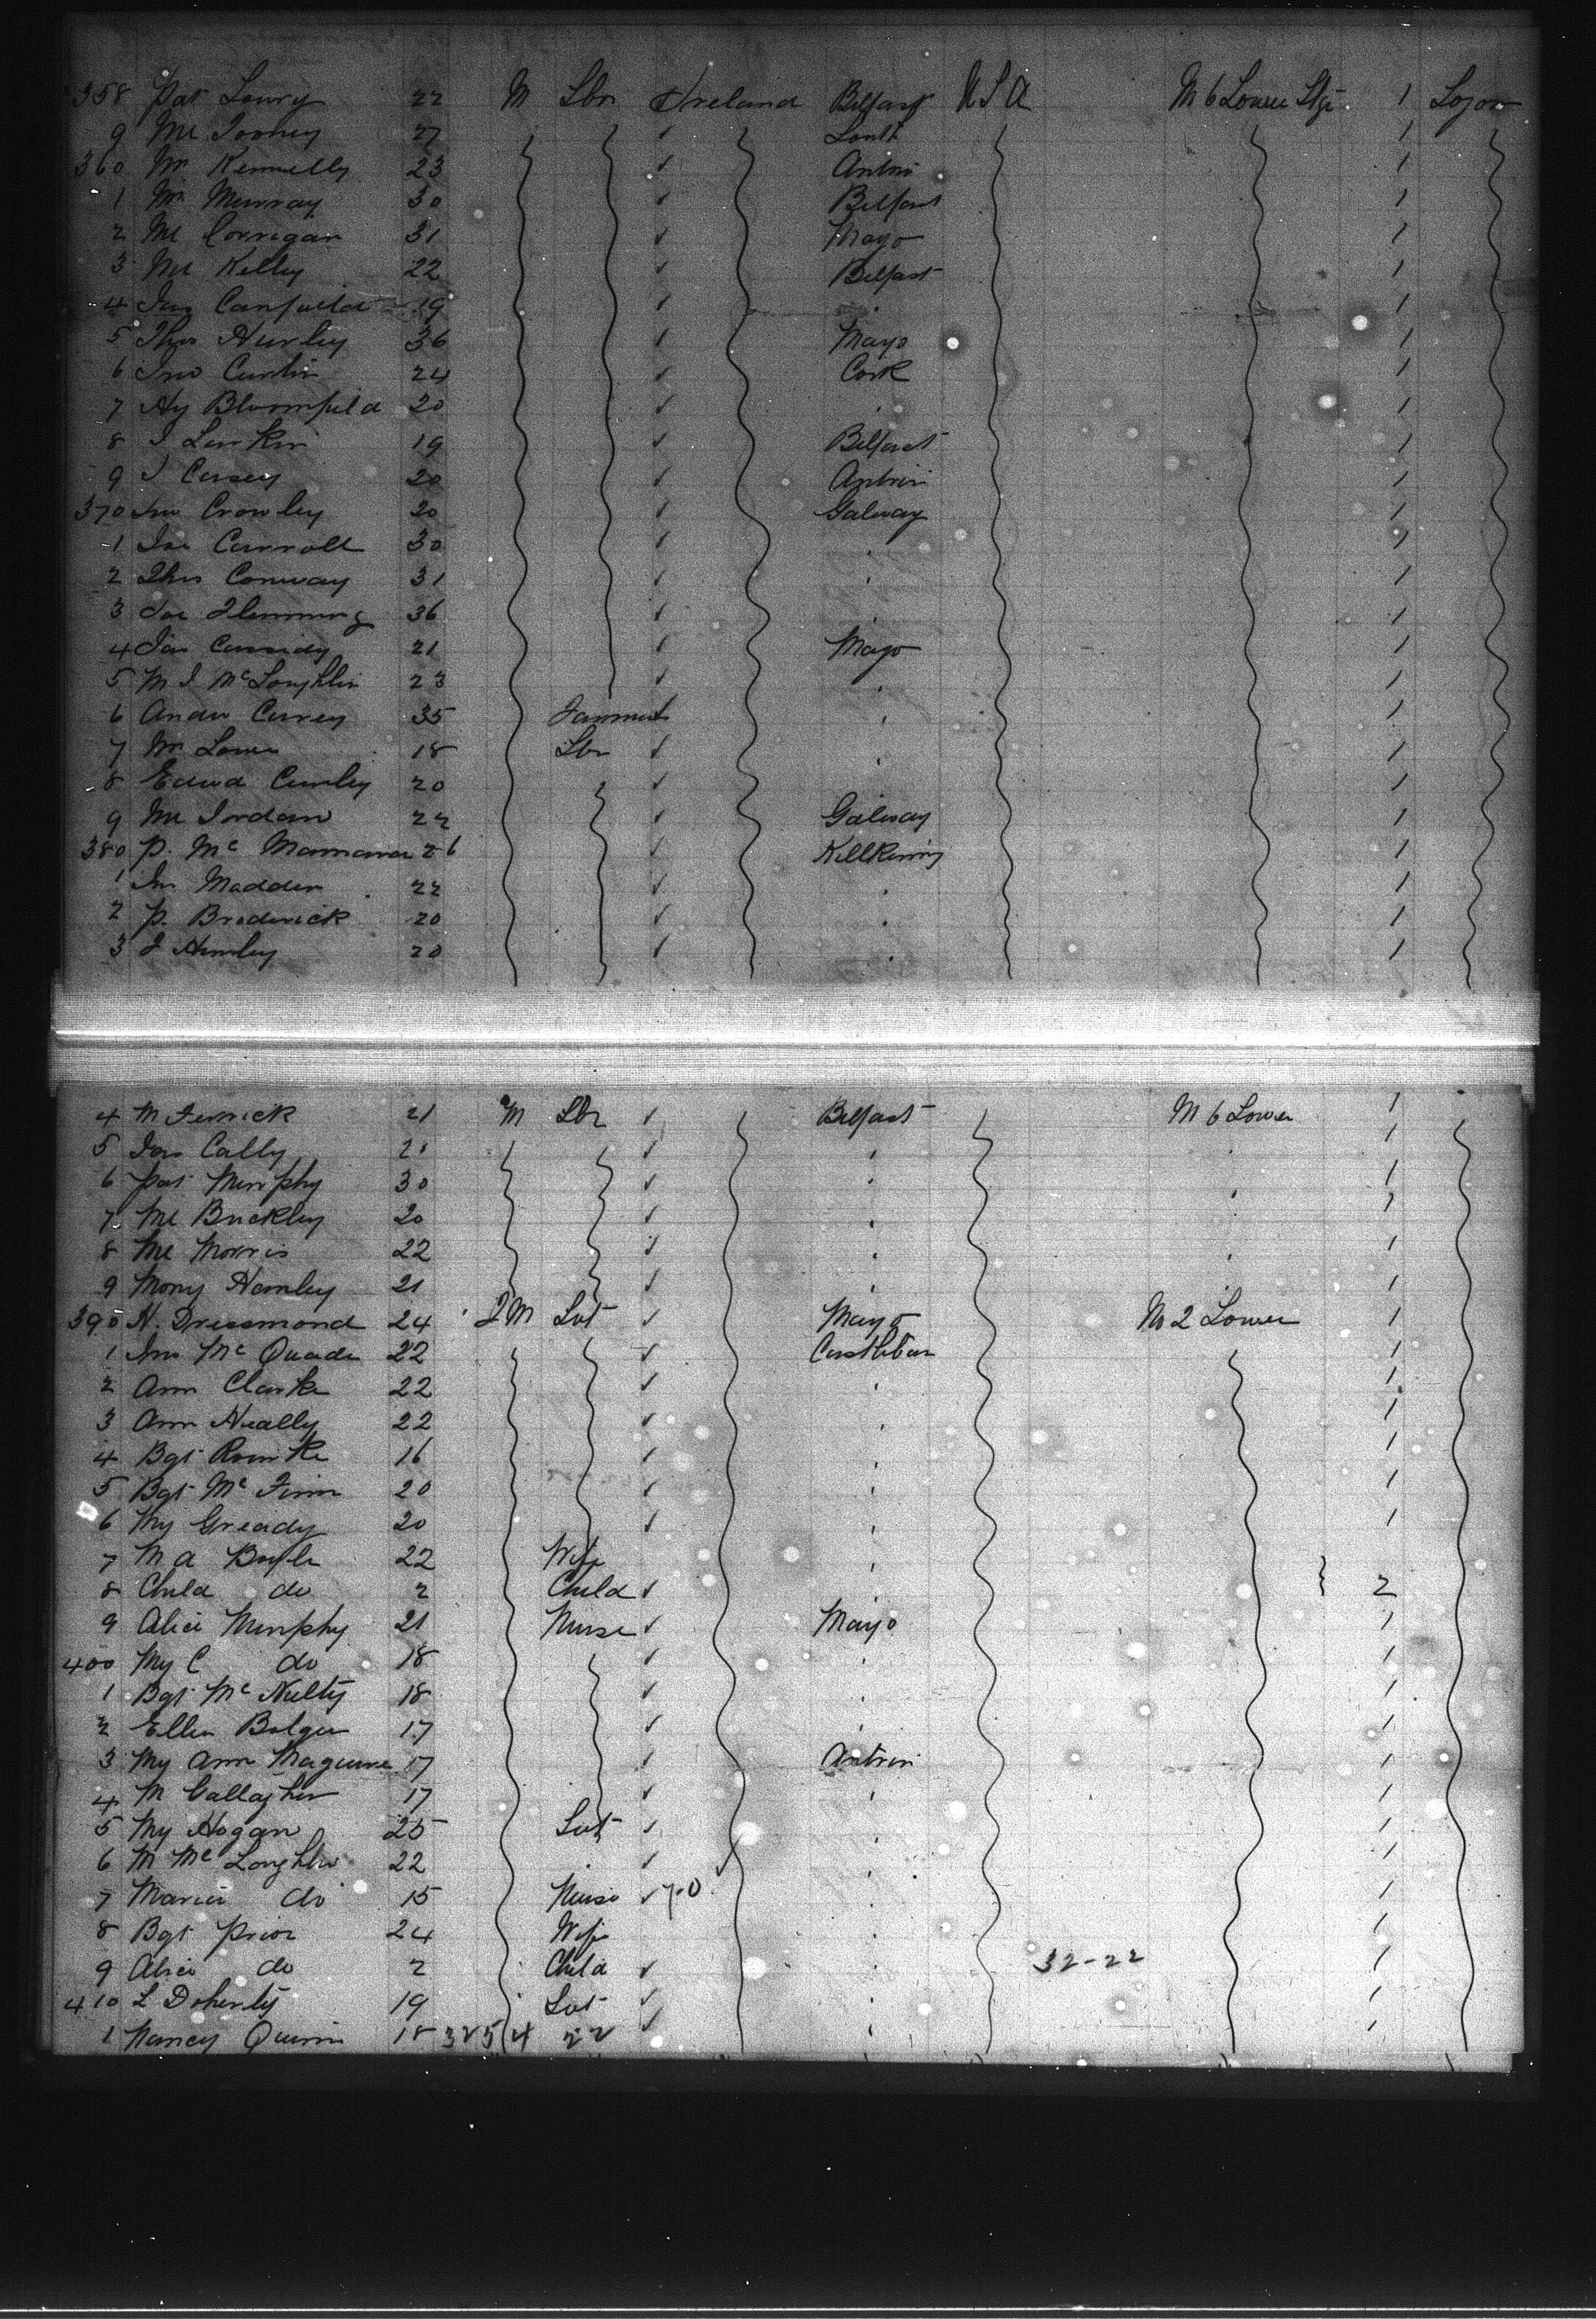 358 Pat Lowry 22 M Lbr Ireland Belfast U S A M 6 Lower Stge 1 Sojon
9 Ml Tooney 27 Louth 1
360 Mr Kennelly 23 ✓ Antrim 1
1 Mr Murray 30 ✓ Belfast 1
2 Ml Corrigan 31 ✓ Mayo 1
3 Ml Kelley 22 ✓ Belfast 1
4 Jno Canfield 19 ✓ " 1
5 Thos Hurley 36 ✓ Mayo 1
6 Jno Curtin 24 ✓ Cork 1
7 Hy Bloomfield 20 ✓ " 1
8 J Larkin 19 ✓ Belfast 1
9 J Casey 20 ✓ Antrim 1
370 Jno Crowley 20 ✓ Galway 1
1 Jos Carroll 30 ✓ " 1
2 Thos Conway 31 ✓ " 1
3 Jos Flemming 36 ✓ 1
4 Jas Cassidy 21 ✓ Mayo 1
5 M J McLoughlin 23 ✓ " 1
6 Andw Curey 35 ✓ " 1
7 Mr Lowe 18 Lbr ✓ " 1
8 Edwd Curley 20 ✓ 1
9 Ml Jordan 22 ✓ Galway 1
380 P. Mc Mamara 26 ✓ Killkenny 1
1 Jno Madden 22 ✓ " 1
2 P. Broderick 20 ✓ " 1
3 J Hurley 20 ✓ " 1
4 M Ferrick 21 M Lbr ✓ Belfast M 6 Lower 1
5 Jas Cally ✓ " " 1
6 Pat Murphy 30 ✓ " " 1
7 Ml Buckley 20 ✓ " 1
8 Ml Morris 22 ✓ " " 1
9 Mony Hanley 21 ✓ " " 1
390 H. Dressmond 24 F M Svt ✓ Mayo No 2 Lower 1
1 Jno Mc Quade 22 ✓ Castlebar 1
2 Ann Clarke 22 ✓ " 1
3 Ann Neally 22 ✓ " 1
4 Bgt Rourke 16 ✓ " 1
5 Bgt Mc Finn 20 ✓ " 1
6 My Gready 20 ✓ " 1
7 M A Boyle 22 Wife "
8 Child do 2 Child ✓ " } 2
9 Alice Murphy 21 Nurse ✓ Mayo 1
400 My C do 18 ✓ " 1
1 Bgt Mc Nulty 18 ✓ " 1
2 Ellen Bolger 17 ✓ " 1
3 My Ann Maguire 17 ✓ Antrim 1
4 M Gallagher 17 ✓ " 1
5 My Hogan 25 Svt ✓ " 1
6 M Mc Loughlin 22 " ✓ " 1
7 Maria do 15 Nurse ✓ 70 " 1
8 Bgt Prior 24 Wife " 1
9 Alice do 2 Child ✓ " 32-22 1
410 L Doherty 19 Svt ✓ 1
1 Nancy Quinn 18 325/4 22 ✓ " 1